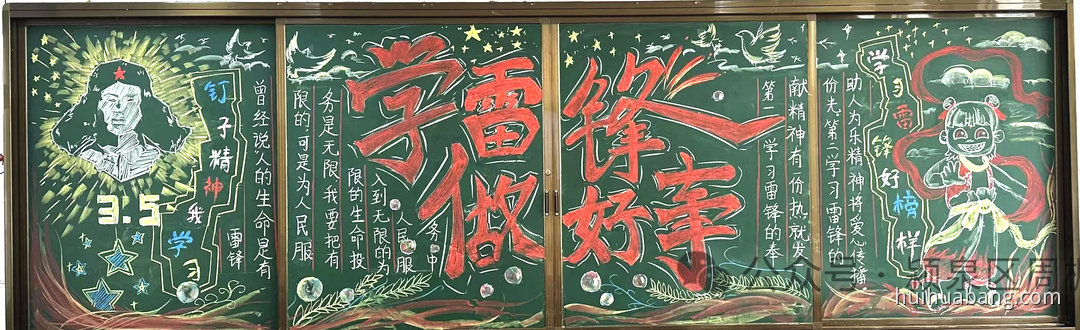 学雷锋
做好事
3.5
钉子精神我学习
雷锋
曾经说人的生命是有
限的,可是为人民服
务是无限,我要把有
限的生命投
入到无限的为
人民服
务中
第二学习雷锋的奉
献精神有一份热就发
份光,第二学习雷锋的
助人为乐精神将爱心传播
学习雷锋好榜样
公众号·颍泉区周棚
huihuabang.com